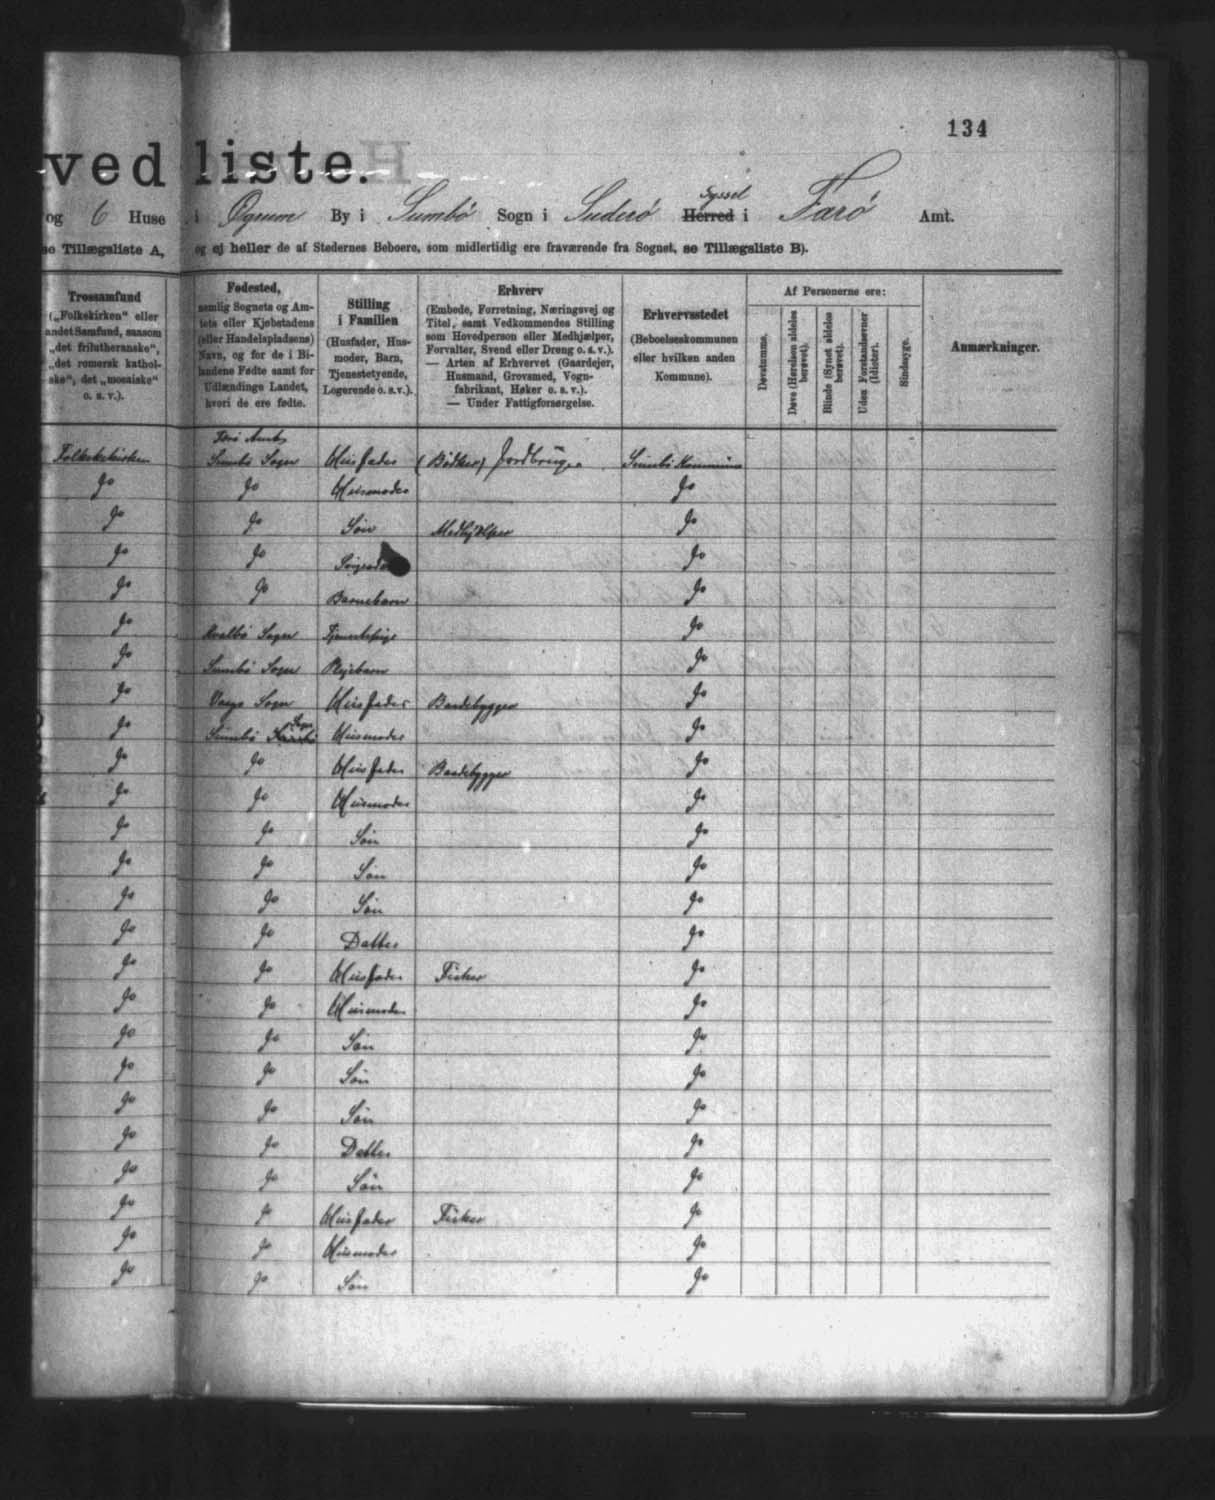 134
ved liste.
og 6 Huse i Øgrum By i Sumbø Sogn i Suderø Herred Syssel i Farø Amt.
se Tillægsliste A, og ej heller de af Stedernes Beboere, som midlertidig ere fraværende fra Sognet, se Tillægsliste B).
Trossamfund
(„Folkekirken“ eller
andet Samfund, saasom
„det frilutheranske“,
„det romersk kathol-
ske“, det „mosaiske“
o. s. v.).
Fødested,
nemlig Sognets og Am-
tets eller Kjøbstadens
(eller Handelspladsens)
Navn, og for de i Bi-
landene Fødte samt for
Udlændinge Landet,
hvori de ere fødte.
Stilling
i Familien
(Husfader, Hus-
moder, Barn,
Tjenestetyende,
Logerende o. s. v.).
Erhverv
(Embede, Forretning, Næringsvej og
Titel, samt Vedkommendes Stilling
som Hovedperson eller Medhjælper,
Forvalter, Svend eller Dreng o. s. v.).
— Arten af Erhvervet (Gaardejer,
Husmand, Grovsmed, Vogn-
fabrikant, Høker o. s. v.).
— Under Fattigforsørgelse.
Erhvervsstedet
(Beboelseskommunen
eller hvilken anden
Kommune).
Af Personerne ere:
Døvstumme.
Døve (Hørelsen aldeles
berøvet).
Blinde (Synet aldeles
berøvet).
Uden Forstandsevner
(Idioter).
Sindssyge.
Anmærkninger.
Farø Amt
Folkekirken Sumbø Sogn Husfader (Bødker) Jordbruger Sumbø Kommune
do do Husmoder do
do do Søn Medhjælper do
do do do
do do Barnebarn do
do Kvalbø Sogn Tjenestepige do
do Sumbø Sogn Plejebarn do
do Vaags Sogn Husfader Baadebygger do
do Sumbø Sogn Husmoder do
do do Husfader Baadebygger do
do do Husmoder do
do do Søn do
do do Søn do
do do Søn do
do do Datter do
do do Husfader Fisker do
do do Husmoder do
do do Søn do
do do Søn do
do do Søn do
do do Datter do
do do Søn do
do do Husfader Fisker do
do do Husmoder do
do do Søn do